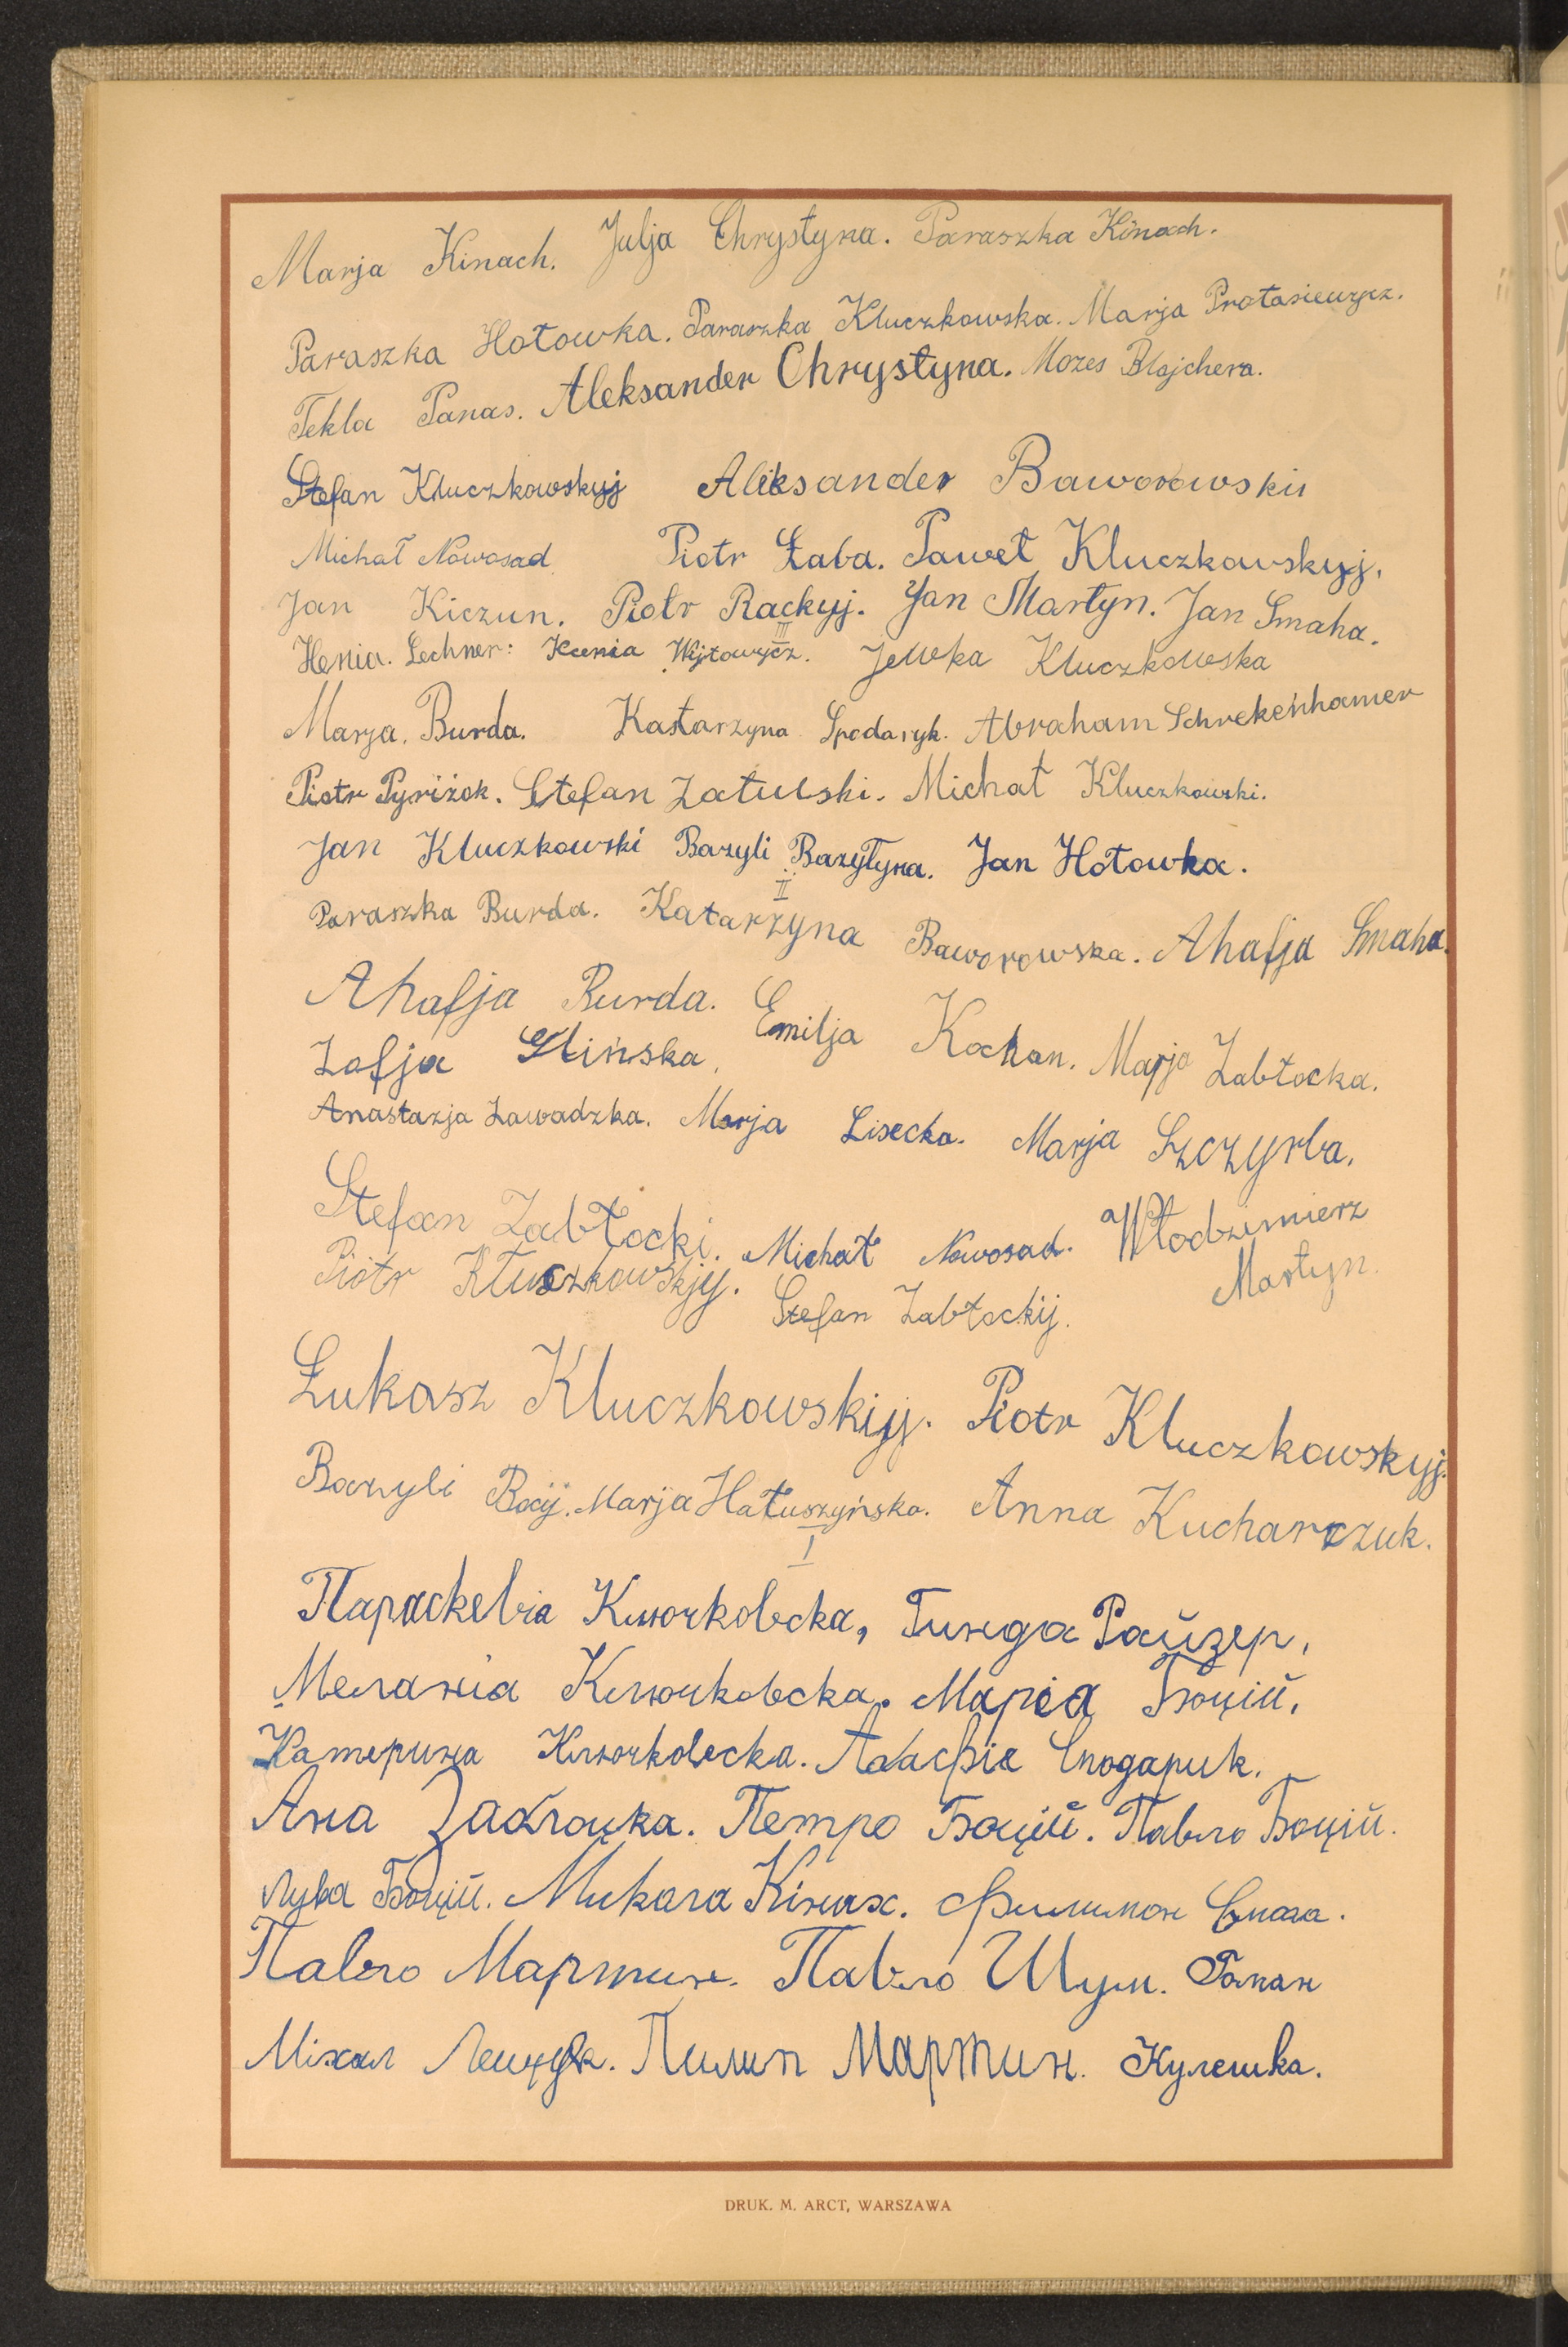 Marja Kinach. Julja Chrystyna. Paraszka Kinach.
Paraszka Hołowka. Paraszka Kluczkowska. Marja Protasiewycz.
Tekla Panas. Aleksander Chrystyna. Mozes Blajchera.
Stefan Kluczkowskyj Aleksander Baworowskii
Michał Nowosad Piotr Łaba. Paweł Kluczkowskyj.
Jan Kiczun. Piotr Rackyj. Jan Martyn. Jan Smaha.
III
Henia. Lechner: Ksenia Wijtowycz. Jewka Kluczkowska
Marja. Burda. Kastarzyna Spodaryk. Abraham Schrekenhamer
Piotr Pyriżok. Stefan Zatulski. Michał Kluczkowski.
Jan Kluczkowski Bazyli Bazylyna. Jan Hołowka.
II
Paraszka Burda. Katarzyna Baworowska. Ahafja Smaha.
Ahafja Burda. Emilja Kochan. Marja Zabłocka.
Zofja Glińska.
Anastazja Zawadzka. Marja Lisecka. Marja Szczyrba.
Stefan Zabłocki. Michał Nowosad. Włodzimierz Martyn.
Piotr Kłuczkowskjy. Stefan Zabłockij.
Łukasz Kluczkowskiyj. Piotr Kluczkowskyj.
Bazyli Bcij. Marja Hałuszyńska. Anna Kucharczuk.
I
Параскевіа Ключковска, Гинда Райзер,
Меланіа Ключковска. Маріа Боцій.
Катерина Ключковска. Агафіа Сподарик.
Ана Заблоцка. Петро Боцій. Павло Боцій.
Лука Боцій. Микола Кінах. Филимон Смага.
Павло Мартин. Павло Шум. Роман
Міхал Лещук. Пилип Мартин. Кулешка.
DRUK. M. ARCT, WARSZAWA